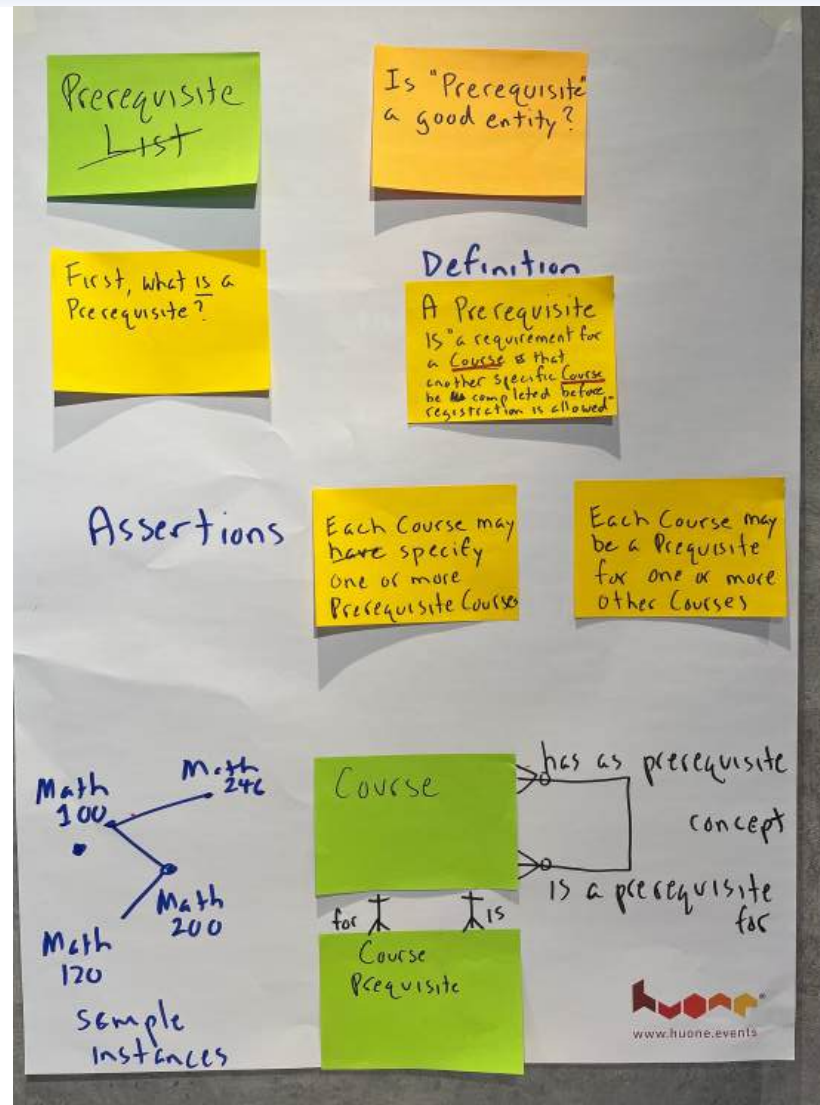 Prerequisite
List
Is "Prerequisite"
a good entity?
First, what is a
Prerequisite?
Definition
A Prerequisite
is "a requirement for
a Course that
another specific Course
be completed before
registration is allowed"
Assertions
Each Course may
have specify
one or more
Prerequisite Courses
Each Course may
be a Prequisite
for one or more
other Courses
Math
100
Math
246
Math
200
Math
120
Sample
Instances
Course
has as prerequisite
concept
is a prerequisite
for
for
is
Course
Prequisite
huone
www.huone.events